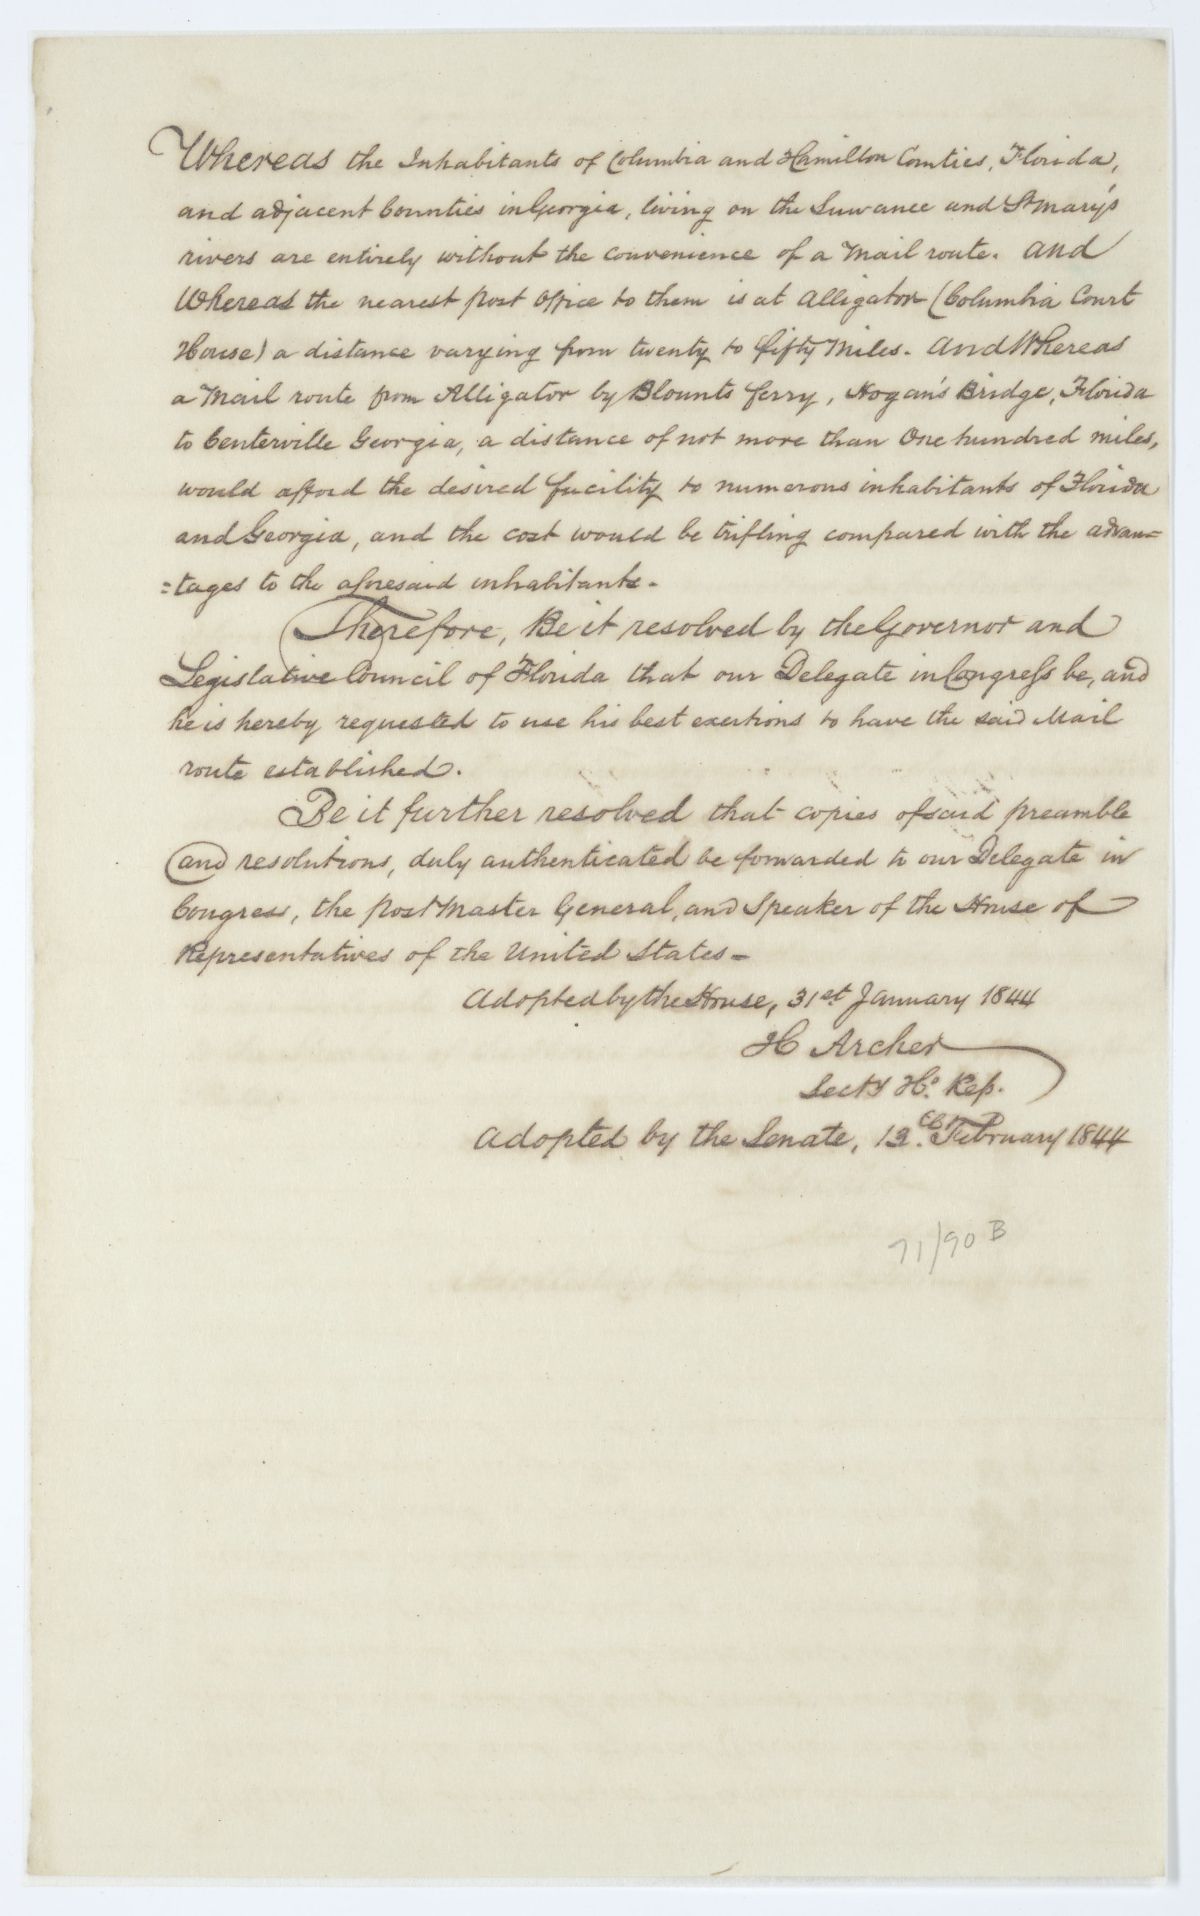 Whereas the Inhabitants of Columbia and Hamilton Counties, Florida,
and adjacent Counties in Georgia, living on the Suwanee and St Mary's
rivers are entirely without the convenience of a Mail route. And
Whereas the nearest post office to them is at Alligator (Columbia Court
House) a distance varying from twenty to fifty Miles. And Whereas
a Mail route from Alligator by Blounts ferry, Hogan's Bridge, Florida
to Centerville Georgia, a distance of not more than One hundred miles,
would afford the desired facility to numerous inhabitants of Florida
and Georgia, and the cost would be trifling compared with the advan=
=tages to the aforesaid inhabitants.
Therefore, Be it resolved by the Governor and
Legislative Council of Florida that our Delegate in Congress be, and
he is hereby requested to use his best exertions to have the said Mail
route established.
Be it further resolved that copies of said preamble
and resolutions, duly authenticated be forwarded to our Delegate in
Congress, the post Master General, and Speaker of the House of
Representatives of the United States=
Adopted by the House, 31st January 1844
H Archer
Secty Ho. Rep.
Adopted by the Senate, February 1844
71/90 B